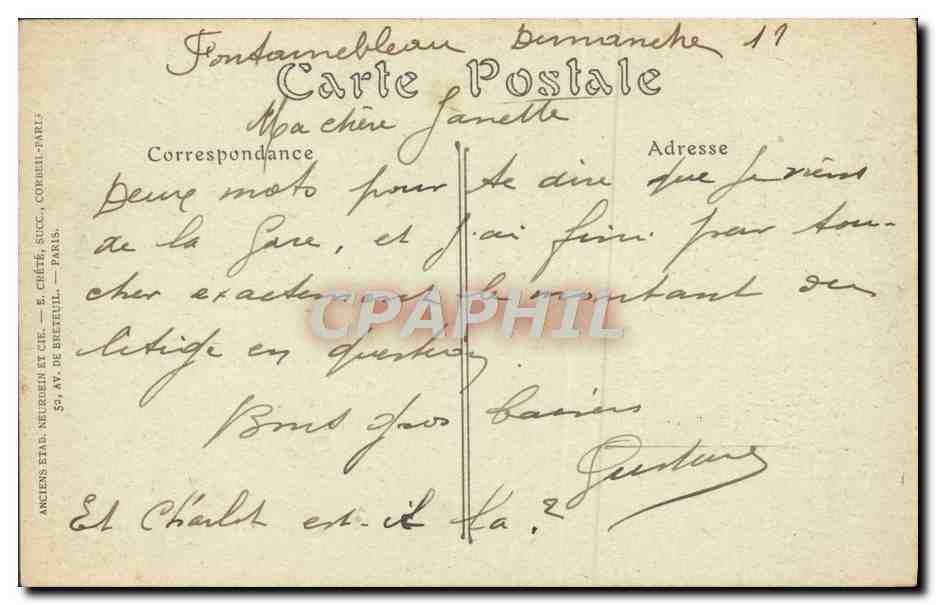 Fontainebleau Dimanche 11
Carte Postale
Ma chère Janette
Correspondance
Adresse
Deux mots pour te dire que je viens
de la Gare, et j'ai fini par tou-
cher exactement le montant du
litige en question
Bons gros baisers
Gustave
Et Charlot est-il là ?
ANCIENS ETAB. NEURDEIN ET CIE. — E. CRÉTÉ, SUCC., CORBEIL-PARIS
52, AV. DE BRETEUIL. — PARIS.
CPAPHIL